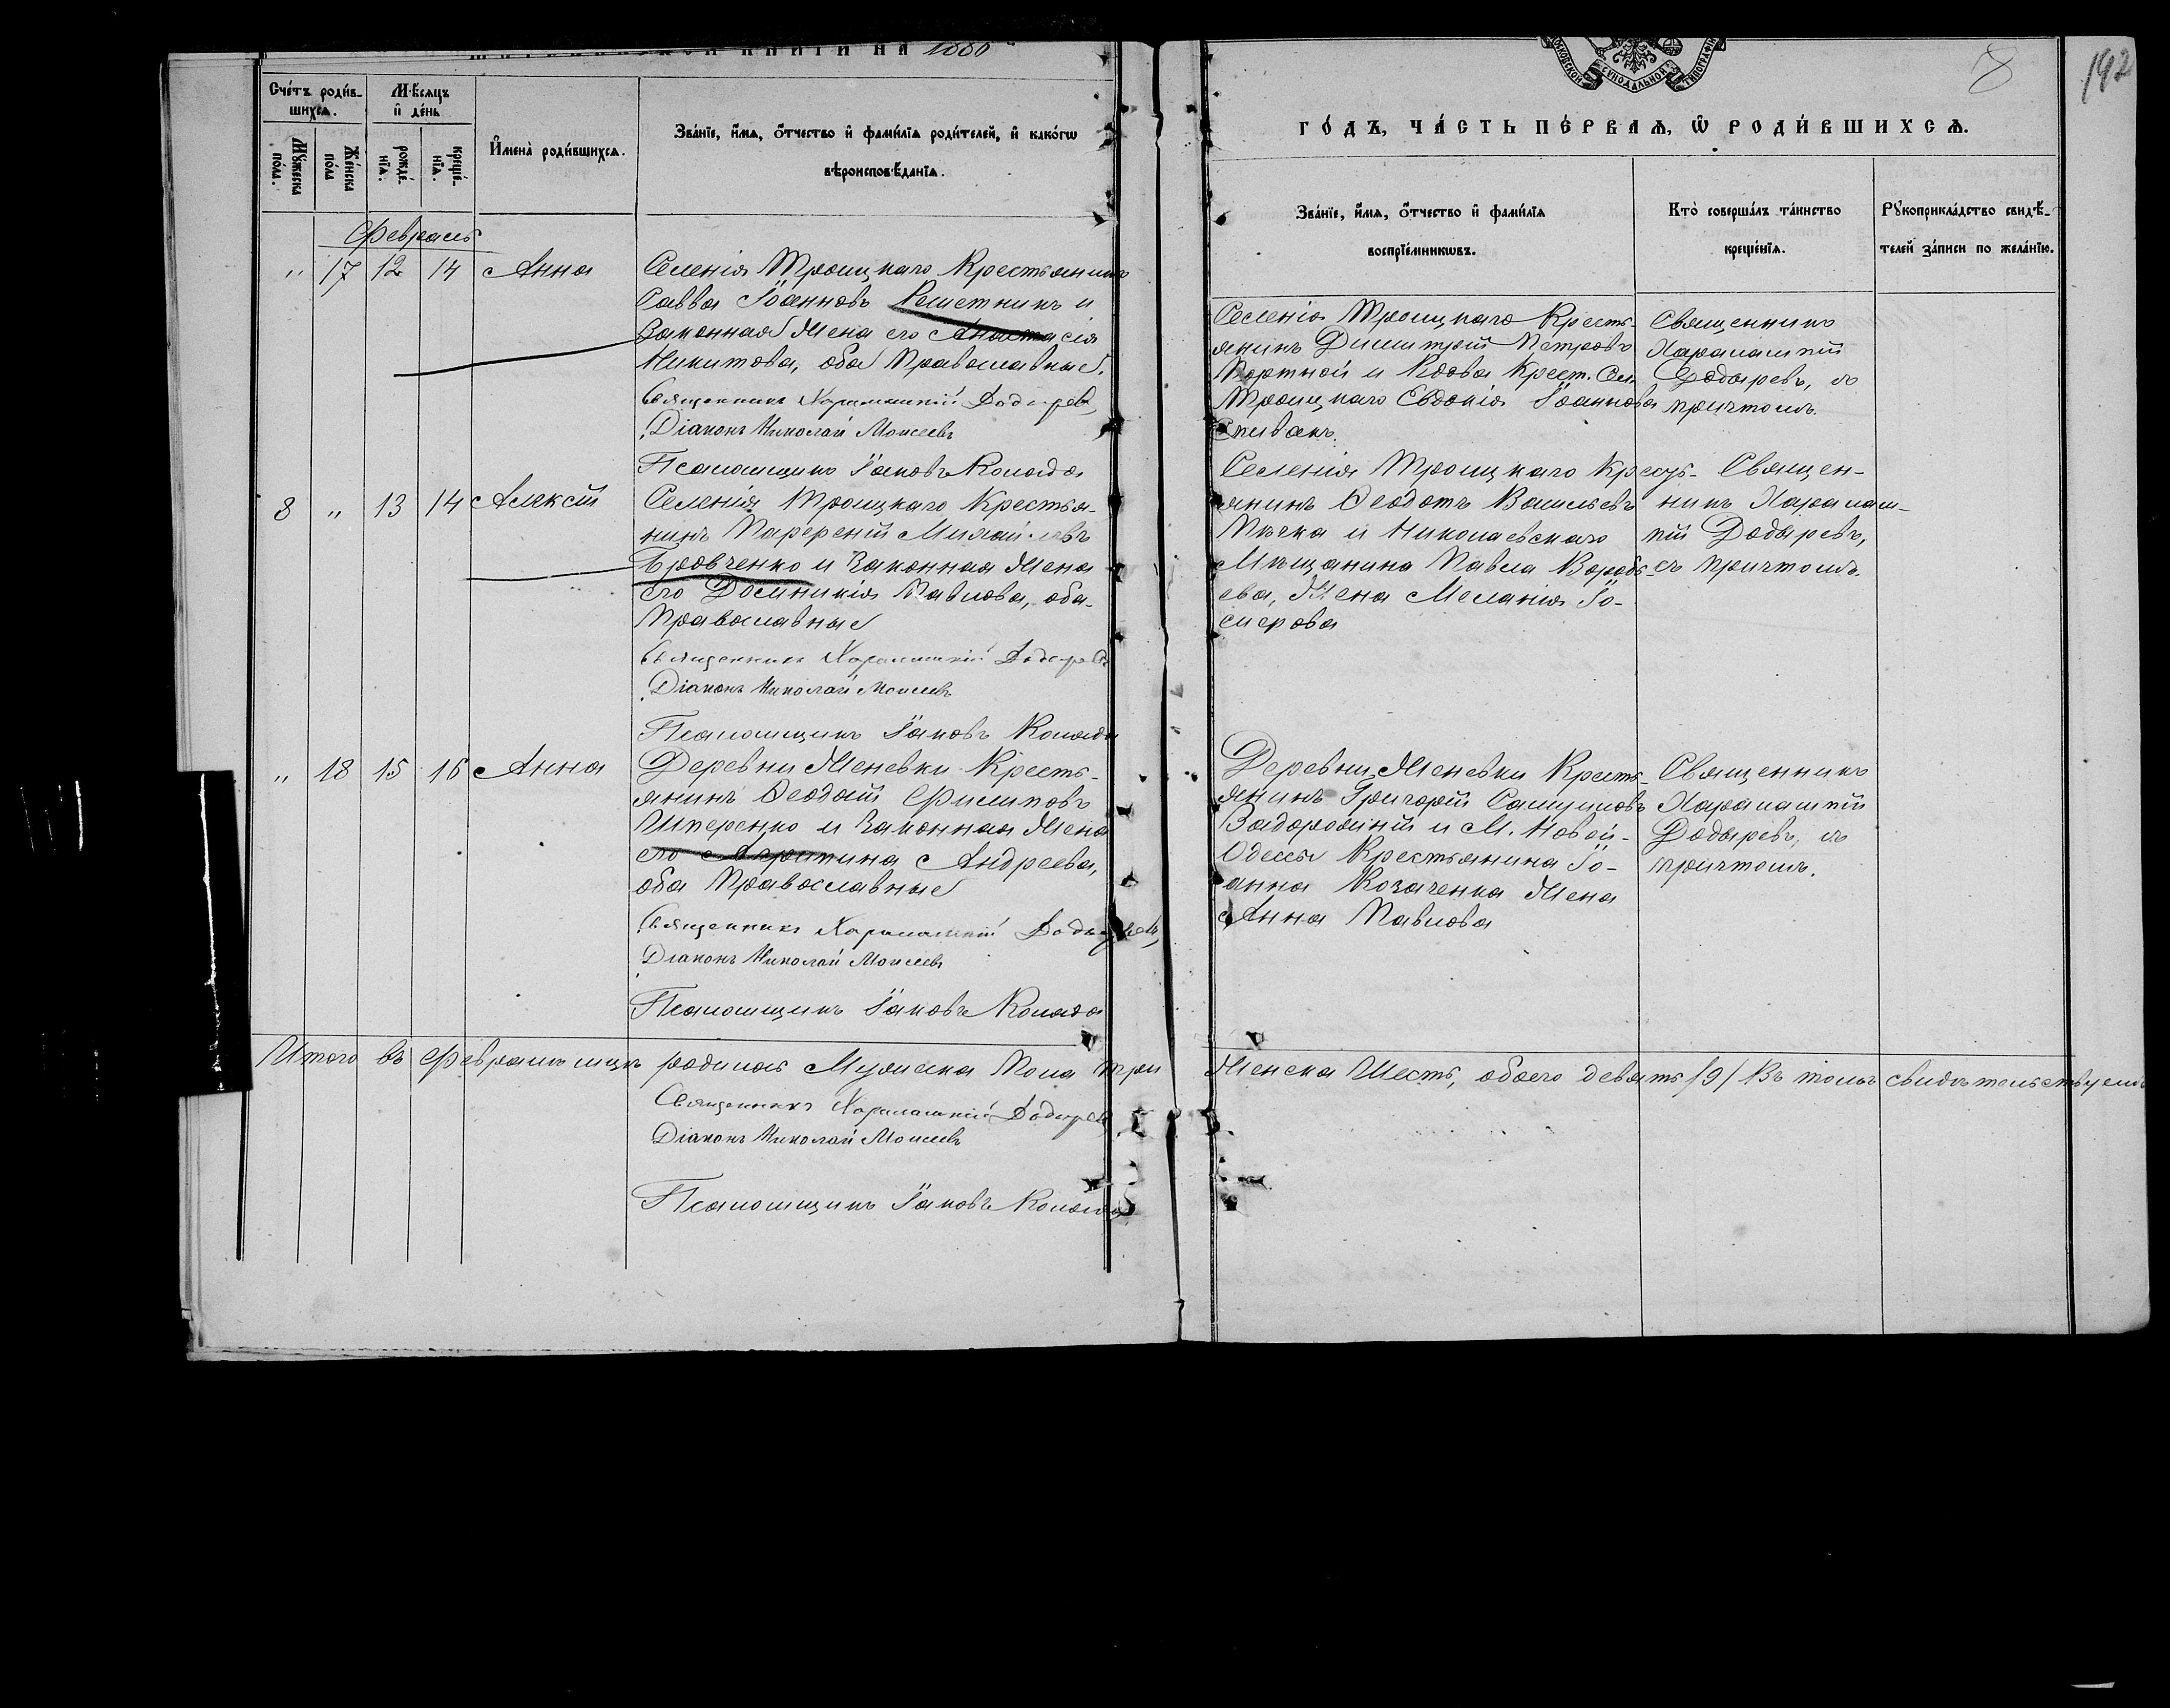 КНИГИ НА 1880
Счетъ родив-
шихся.
Мужеска пола.
Женска пола
Мѣсяцъ
и день
рожденія.
крещенія.
Имена родившихся.
Званіе, имя, отчество и фамилія родителей, и какого
вѣроисповѣданія.
Февраль
" 17 12 14 Анна
Селенія Троицкаго Крестьянинъ
Савва Іоанновъ Решетникъ и
Законная Жена его Анастасія
Никитова, оба Православные.
Священникъ Харалампій Додыревъ
Діаконъ Николай Моисеевъ
Псаломщикъ Іаковъ Коляда
8 " 13 14 Алексій
Селенія Троицкаго Крестья-
нинъ Парфеній
Бровченко и Законная Жена
его Домникія Павлова, оба
Православные
Священникъ Харалампій Додыревъ
Діаконъ Николай Моисеевъ
Псаломщикъ Іаковъ Коляда
" 18 15 16 Анна
Деревни Женевки Кресть-
янинъ Ѳеодотъ Филиповъ
и Законная Жена
его Агрипина Андреева,
оба Православные
Священникъ Харалампій Додыревъ
Діаконъ Николай Моисеевъ
Псаломщикъ Іаковъ Коляда
Итого въ Февралѣ мцѣ родилось Мужеска Пола три
Священникъ Харалампій Додыревъ
Діаконъ Николай Моисеевъ
Псаломщикъ Іаковъ Коляда
МОСКОВСКОЙ СѴНОДАЛЬНОЙ ТИПОГРАФІИ
8
192
ГОДЪ, ЧАСТЬ ПЕРВАЯ, Ѡ РОДИВШИХСЯ.
Званіе, имя, отчество и фамилія
воспріемниковъ.
Кто совершалъ таинство
крещенія.
Рукоприкладство свидѣ-
телей записи по желанію.
Селенія Троицкаго Кресть-
янинъ Димитрій Петровъ
Портной и Вдова Крест. Сел.
Троицкаго Евдокія Іоаннова
Спивакъ.
Священникъ
Харалампій
Додыревъ, съ
причтомъ.
Селенія Троицкаго Кресть-
янинъ Ѳеодотъ Васильевъ
и Николаевскаго
Мѣщанина Павла Воробь-
ева, Жена Меланія Іо-
сифова
Священ-
никъ Харалам-
пій Додыревъ,
съ причтомъ.
Деревни Женевки Кресть-
янинъ Григорій Самуиловъ
Задорожній и М. Новой-
Одессы Крестьянина Іо-
анна Козаченка Жена
Анна Павлова
Священникъ
Харалампій
Додыревъ, съ
причтомъ.
Женска Шесть, обоего девять /9/ Въ томъ свидѣтельствуемъ